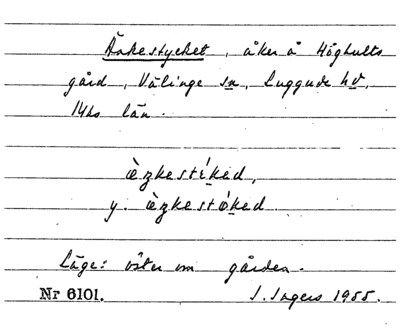 Änkestycket, åker å Höghults
gård, Välinge sn, Luggude hd,
Mhs län.
èŋkestíked,
y. èŋkestǿked.
Läge: öster om gården.
Nr 6101. I. Ingers 1955.